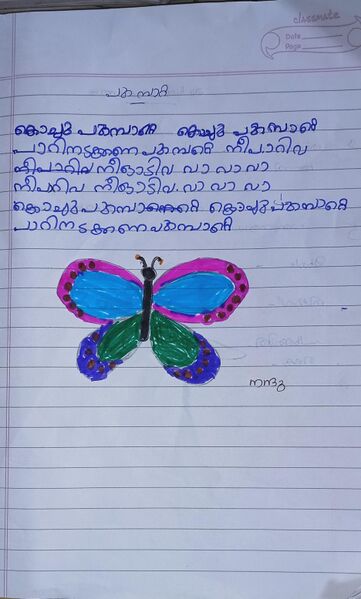 classmate
Date
Page
പൂമ്പാറ്റ
കൊച്ചു പൂമ്പാറ്റെ കൊച്ചു പൂമ്പാറ്റെ
പാറിനടക്കണ പൂമ്പാറ്റെ നീപാറിവ
നീപാറിവ നീആടിവ വാ വാ വാ
നീപാറിവ നീആടിവ വാ വാ വാ
കൊച്ചുപൂമ്പാറ്റെ കൊച്ചുപൂമ്പാറ്റെ
പാറിനടക്കണ പൂമ്പാറ്റെ
നന്ദു